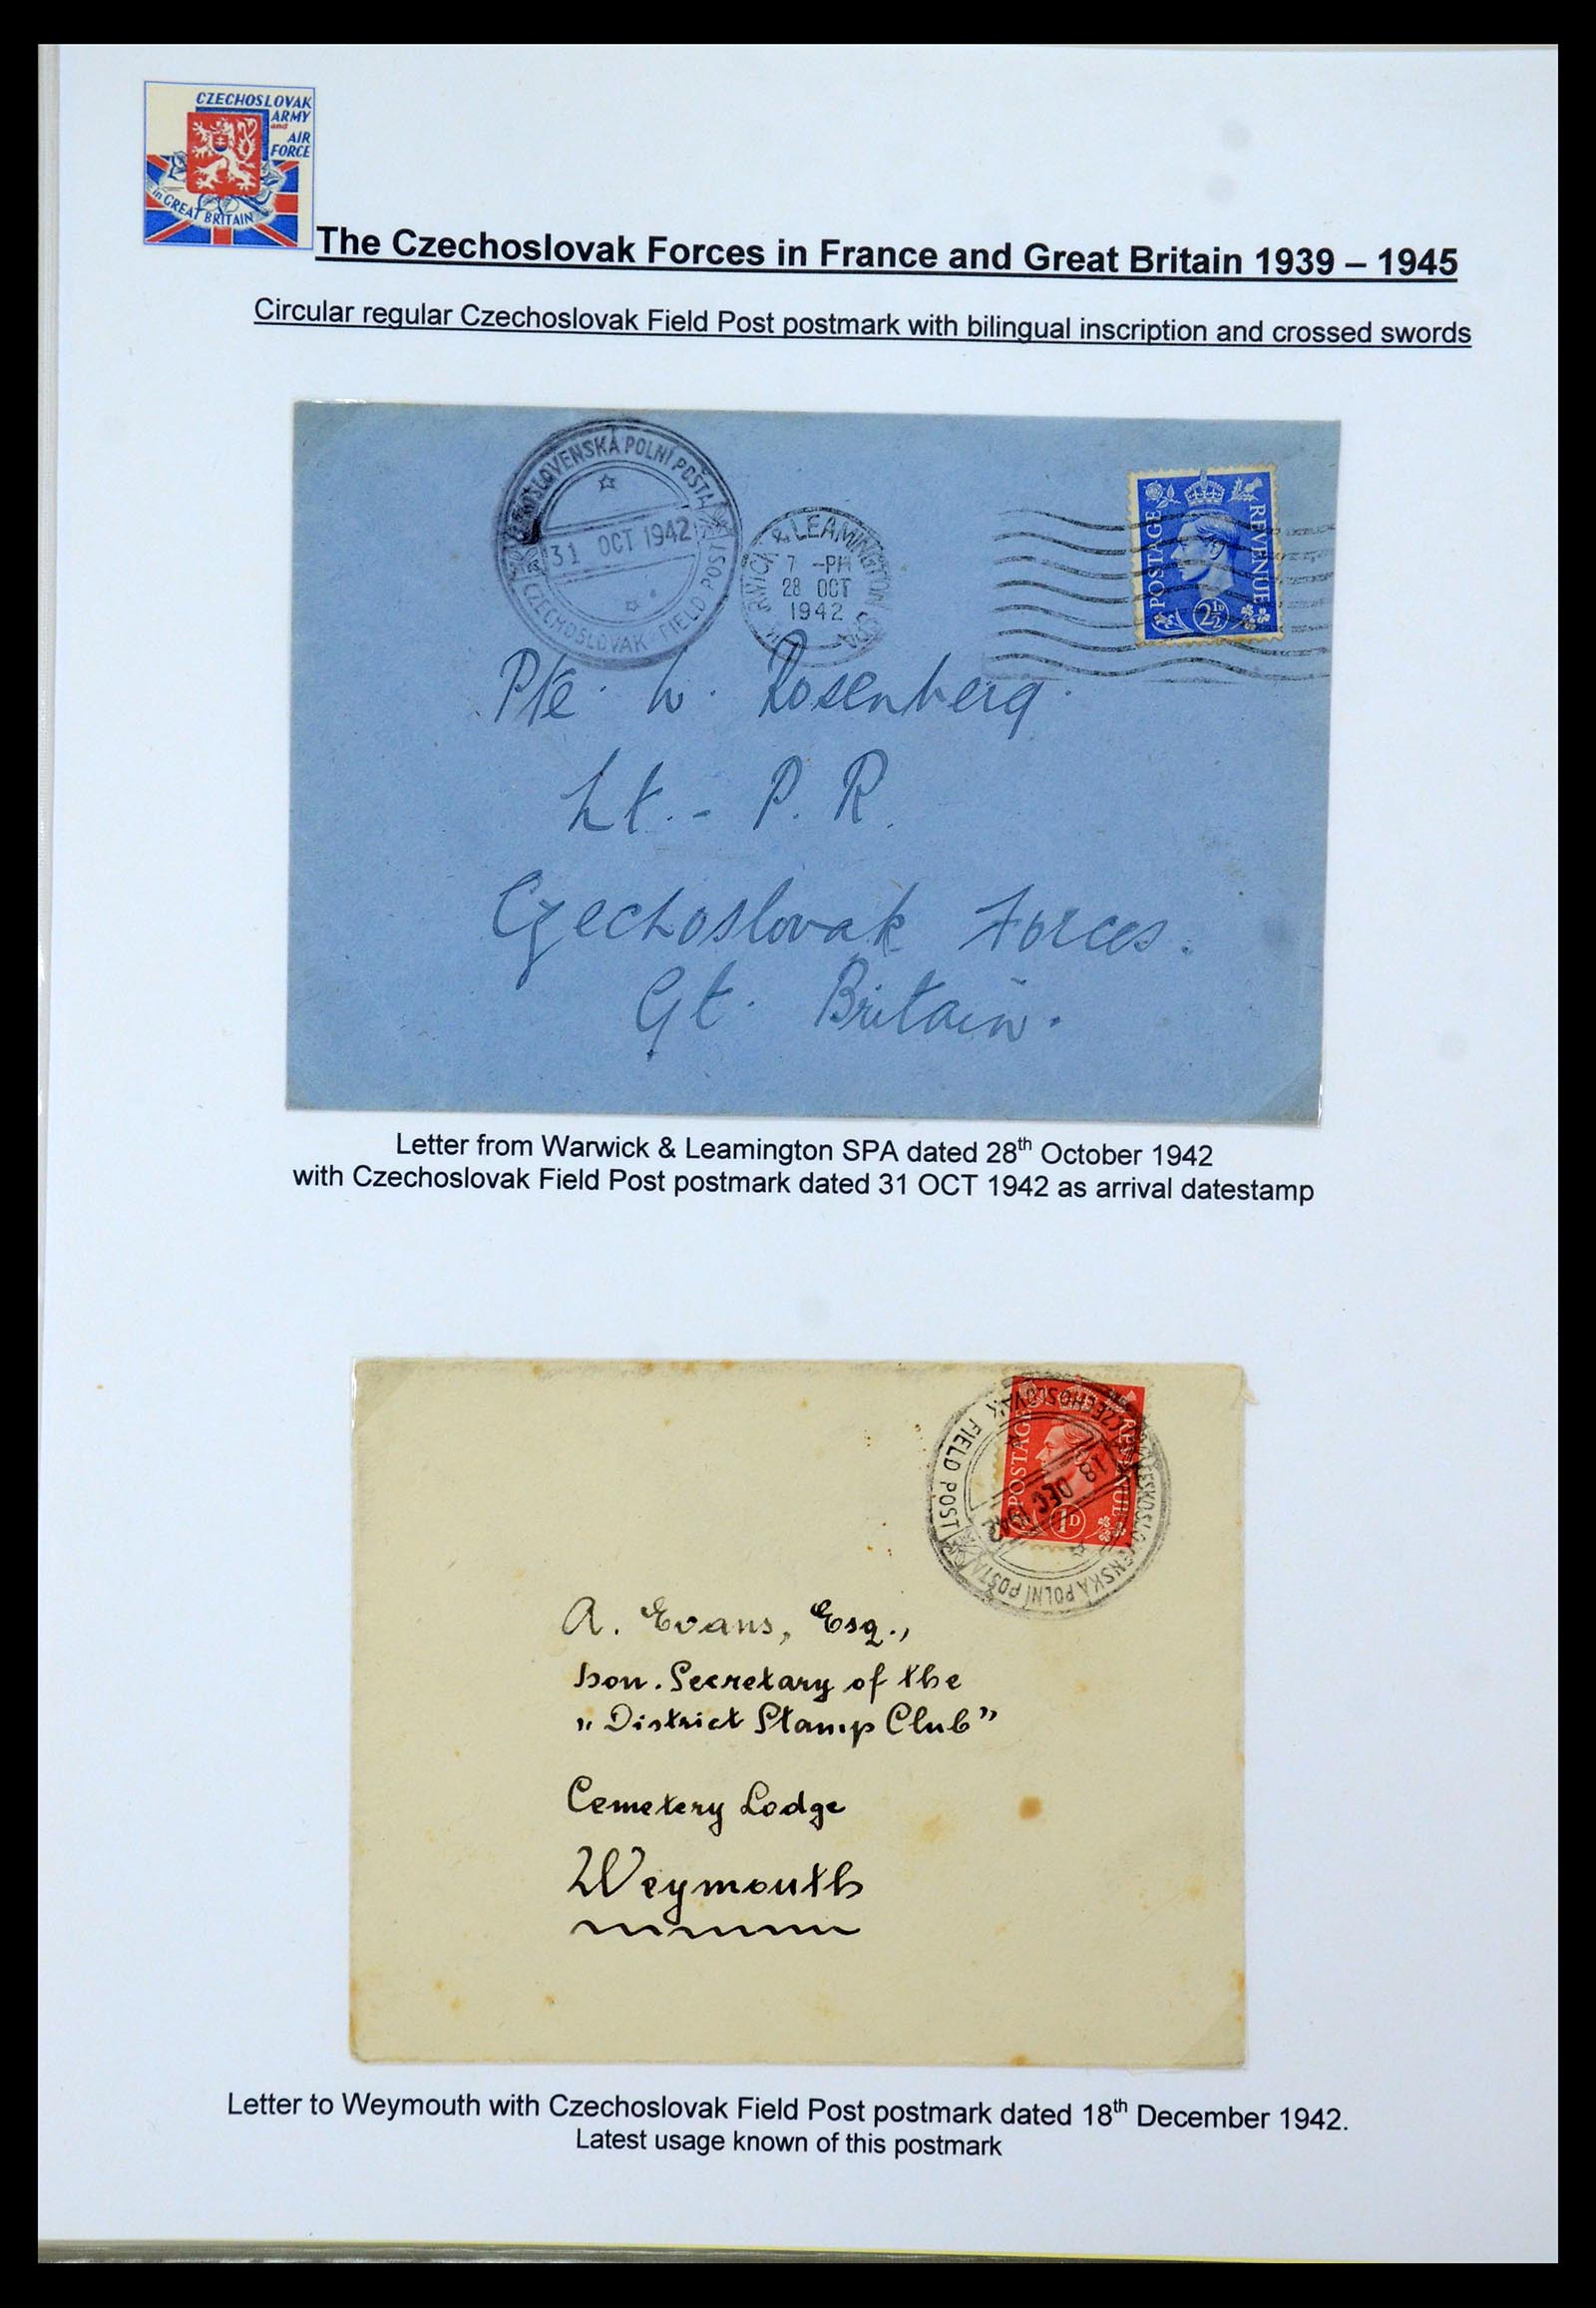 CZECHOSLOVAK
ARMY
and
AIR
FORCE
in GREAT BRITAIN
The Czechoslovak Forces in France and Great Britain 1939 – 1945
Circular regular Czechoslovak Field Post postmark with bilingual inscription and crossed swords
ČESKOSLOVENSKÁ POLNÍ POŠTA
31 OCT 1942
CZECHOSLOVAK FIELD POST
& LEAMINGTON SPA
7 -PM
28 OCT
1942
POSTAGE
REVENUE
2½D
Pte. W. Rosenberg.
Lt. - P. R.
Czechoslovak Forces.
Gt. Britain.
Letter from Warwick & Leamington SPA dated 28th October 1942
with Czechoslovak Field Post postmark dated 31 OCT 1942 as arrival datestamp
CZECHOSLOVAK FIELD POST
18 DEC 1942
ČESKOSLOVENSKÁ POLNÍ POŠTA
POSTAGE
REVENUE
1D
A. Evans, Esq.,
hon. Secretary of the
„District Stamp Club”
Cemetery Lodge
Weymouth
Letter to Weymouth with Czechoslovak Field Post postmark dated 18th December 1942.
Latest usage known of this postmark